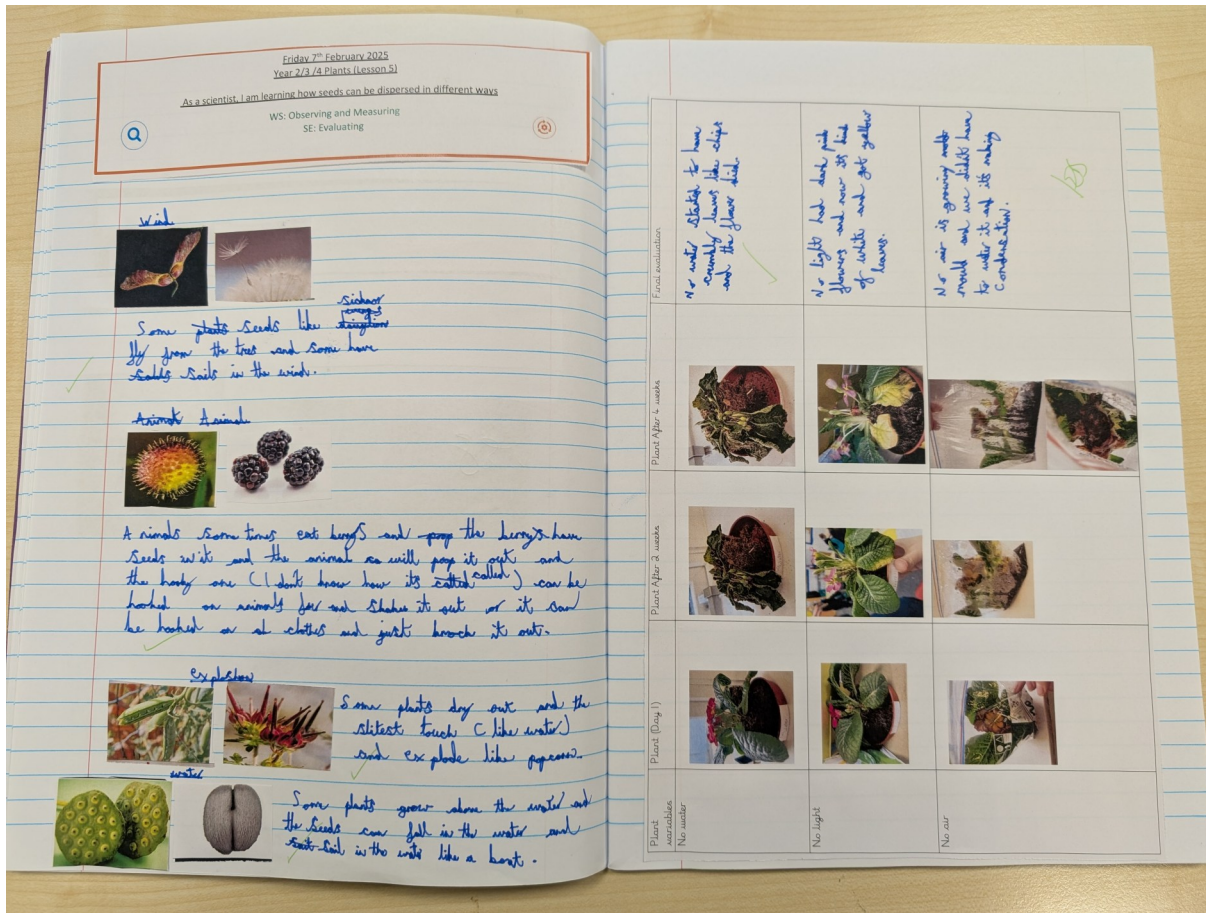 Friday 7th February 2025
Year 2/3 /4 Plants (Lesson 5)
As a scientist, I am learning how seeds can be dispersed in different ways
WS: Observing and Measuring
SE: Evaluating
Wind
Some plants seeds like
fly from the tres and some have
sails in the wind.
Animal Animal
Animals some times eat berrys and poop the berrys have
seeds in it and the animal so will poop it out and
the hooky one (I don't know how its called called) can be
hooked on animals fur and shakes it out or it can
be hooked on clothes and just knock it out.
explashon
Some plants dry out and the
slitest touch (like water)
and explode like popcorn.
water
Some plants grow above the water and
the seeds can fall in the water and
sail in the water like a boat.
Plant variables
Plant (Day 1)
Plant After 2 weeks
Plant After 4 weeks
Final evaluation
No water
No water started to have
crumbly leaves like chips
and the flower died.
No light
No light had dark pink
flowers and now its kind
of white and got yellow
leaves.
No air
No air is growing mold
mould and we didn't have
to water it and it's making
Condensation.